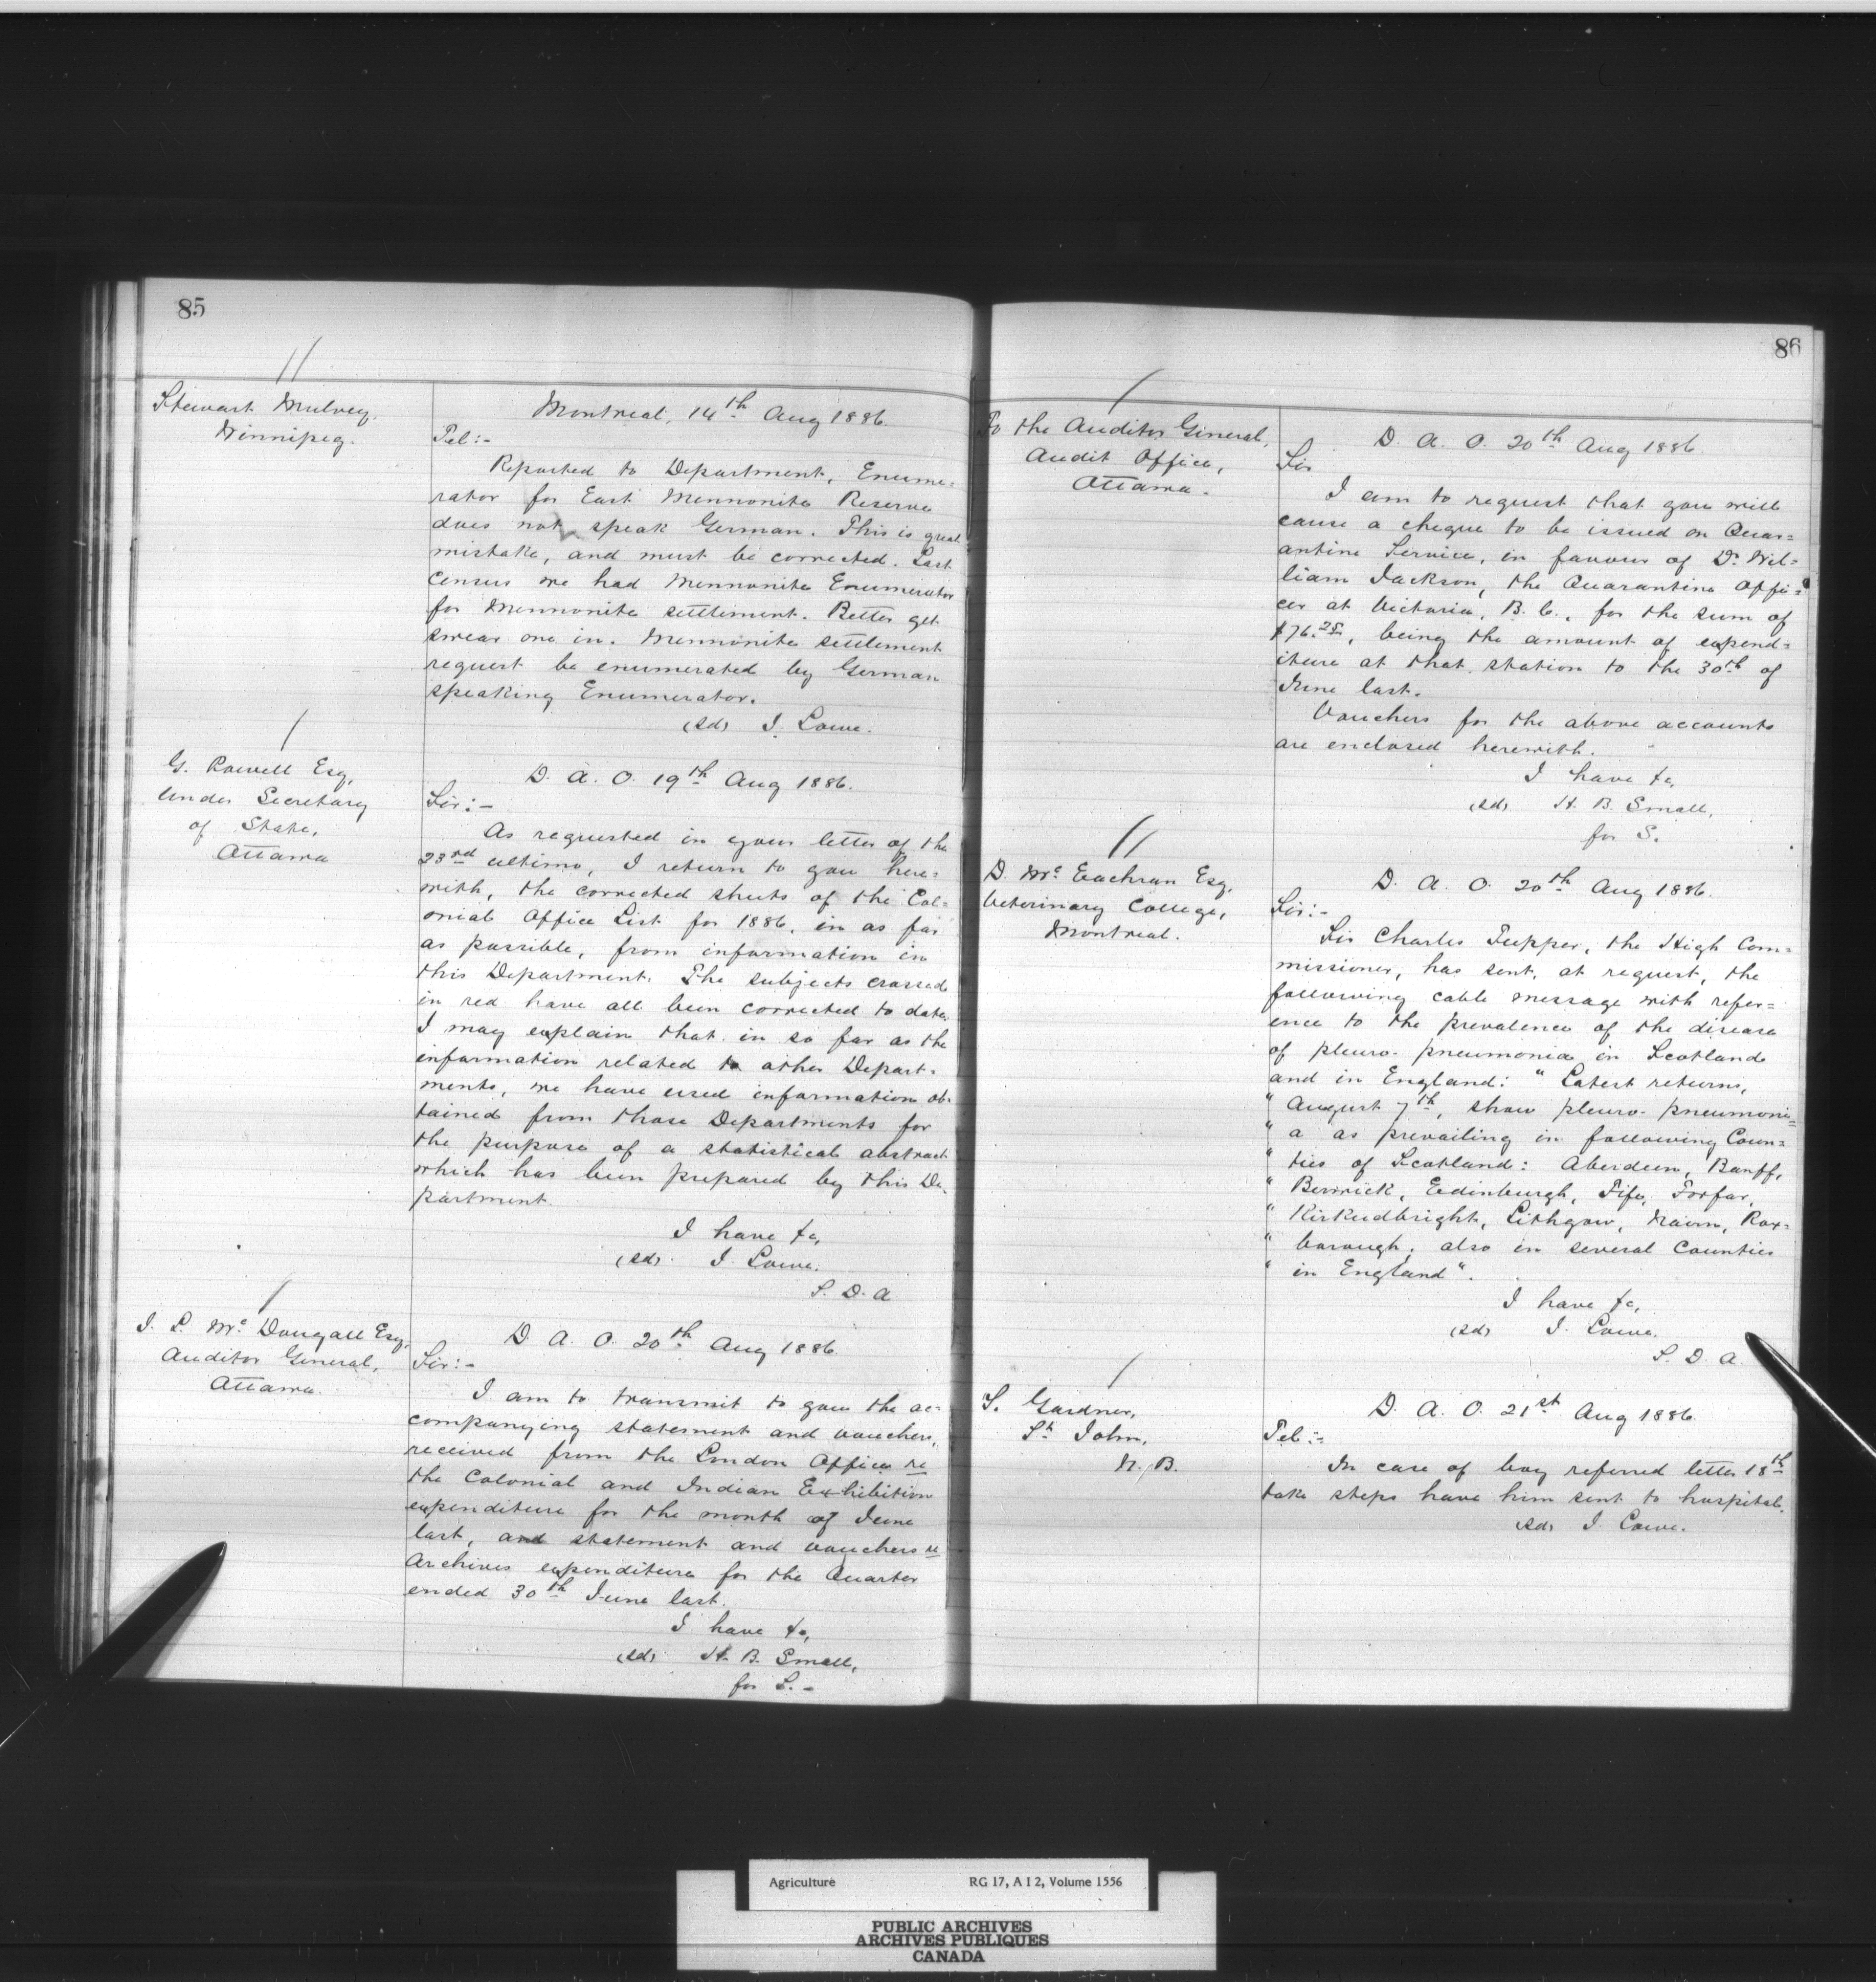 85
Stewart Mulvey.
Winnipeg.
Montreal, 14th Aug 1886.
Tel:-
Reported to Department, Enume=
rator for East Mennonite Reserve
does not speak German. This is great
mistake, and must be corrected. Last
Census we had Mennonite Enumerator
for Mennonite settlement. Better get
swear one in. Mennonite settlement
request be enumerated by German
speaking Enumerator.
(sd) J. Lowe.
G. Powell Esq,
Under Secretary
of State,
Ottawa
D. A. O. 19th Aug 1886.
Sir:-
As requested in your letter of the
23rd ultimo, I return to you here=
with, the corrected sheets of the Col=
onial Office List for 1886, in as far
as possible, from information in
this Department. The subjects crossed
in red have all been corrected to date.
I may explain that in so far as the
information related to other Depart=
ments, we have used information ob=
tained from those Departments for
the purpose of a statistical abstract
which has been prepared by this De=
partment.
I have &c,
(sd) J. Lowe.
S. D. A
J. L. McDougall Esq,
Auditor General,
Ottawa.
D. A. O. 20th Aug 1886.
Sir:-
I am to transmit to you the ac=
companying statement and vouchers,
received from the London Office re
the Colonial and Indian Exhibition
expenditure for the month of June
last, and statement and vouchers re
Archives expenditure for the Quarter
ended 30th June last.
I have &c,
(sd) H. B. Small,
for S.-
86
To the Auditor General,
Audit Office,
Ottawa.
D. A. O. 20th Aug 1886.
Sir
I am to request that you will
cause a cheque to be issued on Quar=
antine Service, in favour of Dr Wil=
liam Jackson, the Quarantine Offi=
cer at Victoria, B. C., for the sum of
$76.25, being the amount of expend=
iture at that station to the 30th of
June last.
Vouchers for the above accounts
are enclosed herewith.
I have &c,
(sd) H. B. Small,
for S.
D. McEachran Esq,
Veterinary College,
Montreal.
D. A. O. 20th Aug 1886.
Sir:-
Sir Charles Tupper, the High Com=
missioner, has sent, at request, the
following cable message with refer=
ence to the prevalence of the disease
of pleuro-pneumonia in Scotland
and in England: "Latest returns,
" August 7th, show pleuro-pneumoni=
" a as prevailing in following Coun=
" ties of Scotland: Aberdeen, Banff,
" Berwick, Edinburgh, Fife, Forfar,
" Kirkudbright, Lithgow, Nairn, Rox=
" borough; also in several Counties
" in England".
I have &c,
(sd) J. Lowe.
S. D. A.
S. Gardner,
St John,
N. B.
D. A. O. 21st Aug 1886.
Tel:-
In case of boy referred letter 18th
take steps have him sent to hospital.
(sd) J. Lowe.
Agriculture RG 17, A I 2, Volume 1556
PUBLIC ARCHIVES
ARCHIVES PUBLIQUES
CANADA